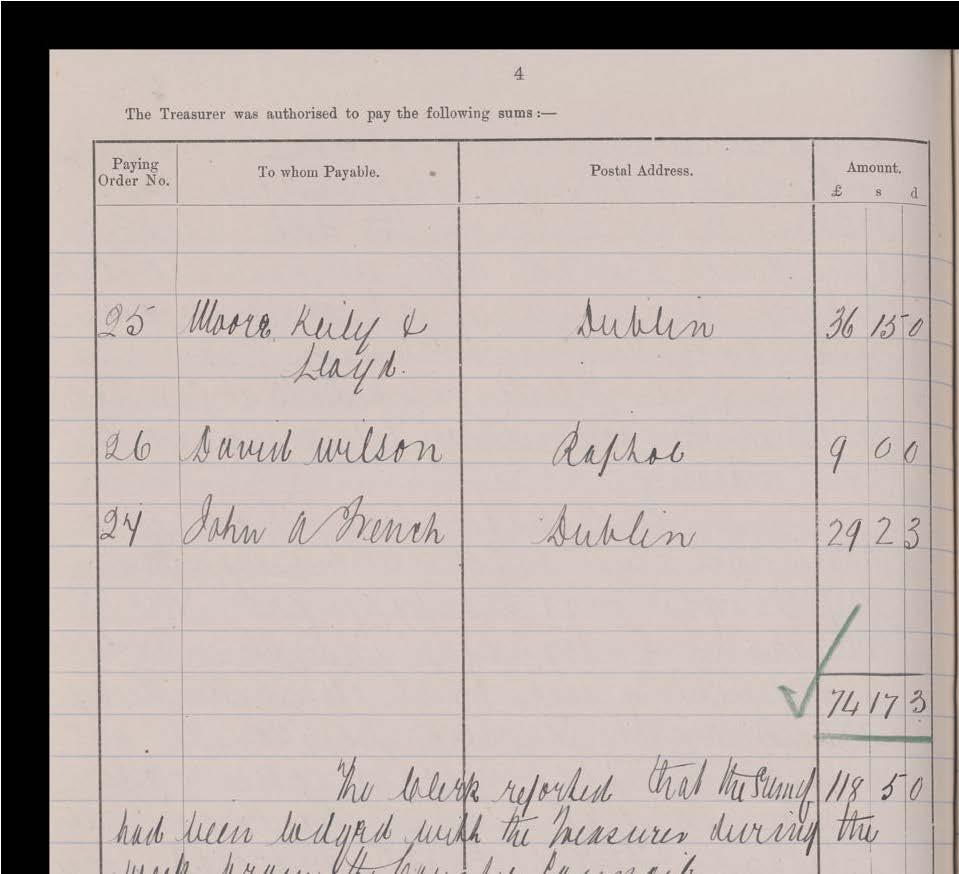 4
The Treasurer was authorised to pay the following sums :—
Paying Order No. To whom Payable. Postal Address. Amount. £ s d
25 Moore Keily & Dublin 36 15 0
Lloyd.
26 David Wilson Raphoe 9 0 0
27 John A French Dublin 29 2 3
74 17 3
The Clerk reported that the Sum of 118 5 0
had been lodged with the Treasurer during the
week from the County Council